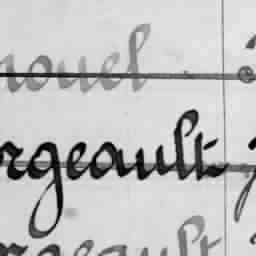 nouel
rgeault
rgeault